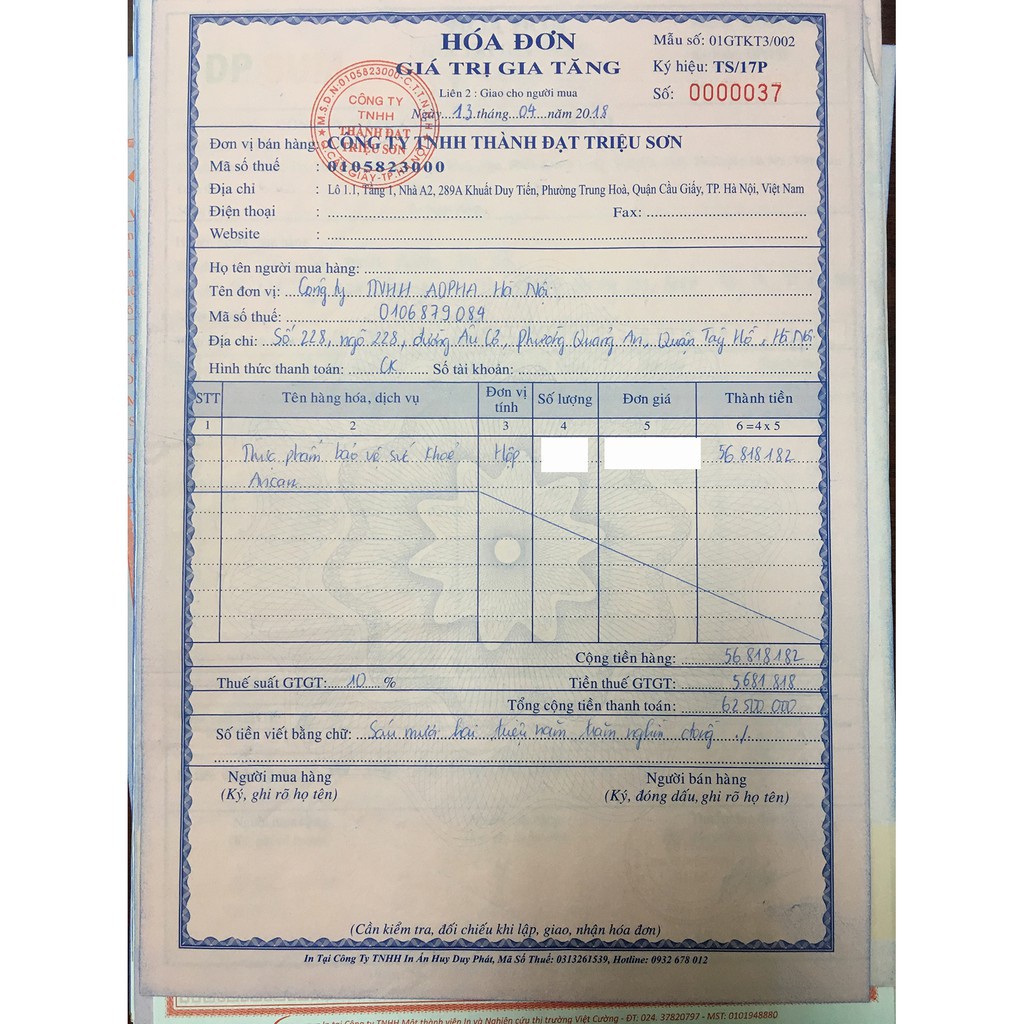 HÓA ĐƠN
GIÁ TRỊ GIA TĂNG
Liên 2 : Giao cho người mua
Ngày...13...tháng...04...năm 2018
Mẫu số: 01GTKT3/002
Ký hiệu: TS/17P
Số: 0000037
M.S.D.N:0105823000-C.T.T.N.H.H
CÔNG TY
TNHH
THÀNH ĐẠT
TRIỆU SƠN
Q.CẦU GIẤY-TP.HÀ NỘI
Đơn vị bán hàng: CÔNG TY TNHH THÀNH ĐẠT TRIỆU SƠN
Mã số thuế : 0105823000
Địa chỉ : Lô 1.1, Tầng 1, Nhà A2, 289A Khuất Duy Tiến, Phường Trung Hoà, Quận Cầu Giấy, TP. Hà Nội, Việt Nam
Điện thoại : Fax:
Website :
Họ tên người mua hàng:
Tên đơn vị: Công ty TNHH ADPHA Hà Nội
Mã số thuế: 0106879084
Địa chỉ: Số 228, ngõ 228, đường Âu Cơ, phường Quảng An, Quận Tây Hồ, Hà Nội
Hình thức thanh toán: CK Số tài khoản:
STT Tên hàng hóa, dịch vụ Đơn vị tính Số lượng Đơn giá Thành tiền
1 2 3 4 5 6 = 4 x 5
Thực phẩm bảo vệ sức khoẻ Hộp 56 818 182
Ancan
Cộng tiền hàng: 56 818 182
Thuế suất GTGT: 10 % Tiền thuế GTGT: 5 681 818
Tổng cộng tiền thanh toán: 62 500 000
Số tiền viết bằng chữ: Sáu mươi hai triệu năm trăm nghìn đồng ./.
Người mua hàng Người bán hàng
(Ký, ghi rõ họ tên) (Ký, đóng dấu, ghi rõ họ tên)
(Cần kiểm tra, đối chiếu khi lập, giao, nhận hóa đơn)
In Tại Công Ty TNHH In Ấn Huy Duy Phát, Mã Số Thuế: 0313261539, Hotline: 0932 678 012
In tại Công ty TNHH Một thành viên In và Nghiên cứu thị trường Việt Cường - ĐT: 024. 37820797 - MST: 0101948880